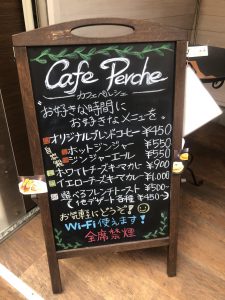 Cafe Perche
カフェ ペルシェ
"お好きな時間に
お好きなメニューを。"
オリジナルブレンドコーヒー ¥450
自家製
ホットジンジャー ¥550
ジンジャーエール ¥550
ホワイトチーズキーマカレー ¥900
イエローチーズキーマカレー ¥1,000
選べるフレンチトースト ¥500~
(他デザート各種 ¥450~)
お気軽にどうぞ!
Wi-Fi 使えます!
全席禁煙